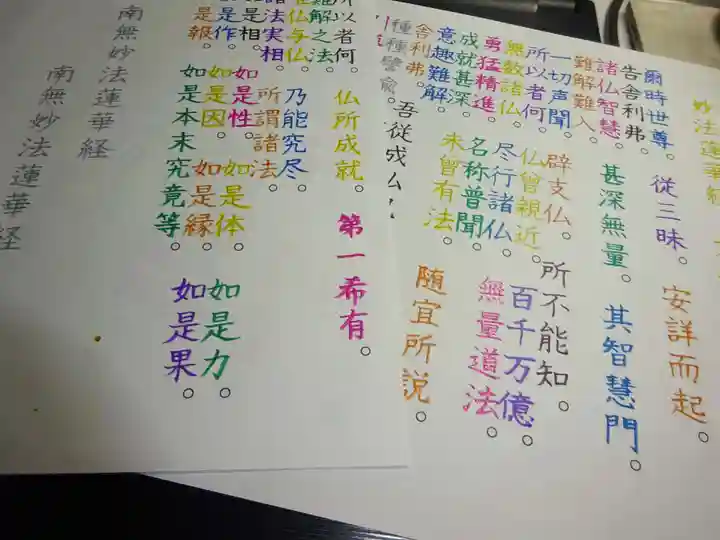 妙法蓮華経
爾時世尊。従三昧。安詳而起。
告舎利弗
諸仏智慧。甚深無量。其智慧門。
難解難入
一切声聞。辟支仏。所不能知。
所以者何。仏曾親近。百千万億。
無数諸仏。尽行諸仏。無量道法。
勇猛精進。名称普聞。
成就甚深。未曾有法。
意趣難解。随宜所説。
舎利弗。吾従成仏
種種譬喩。
所以者何。仏所成就。第一希有。
難解之法。
唯仏与仏。乃能究尽。
諸法実相。所謂諸法。
如是相。如是性。如是体。如是力。
如是作。如是因。如是縁。如是果。
如是報。如是本末究竟等。
南無妙法蓮華経
南無妙法蓮華経